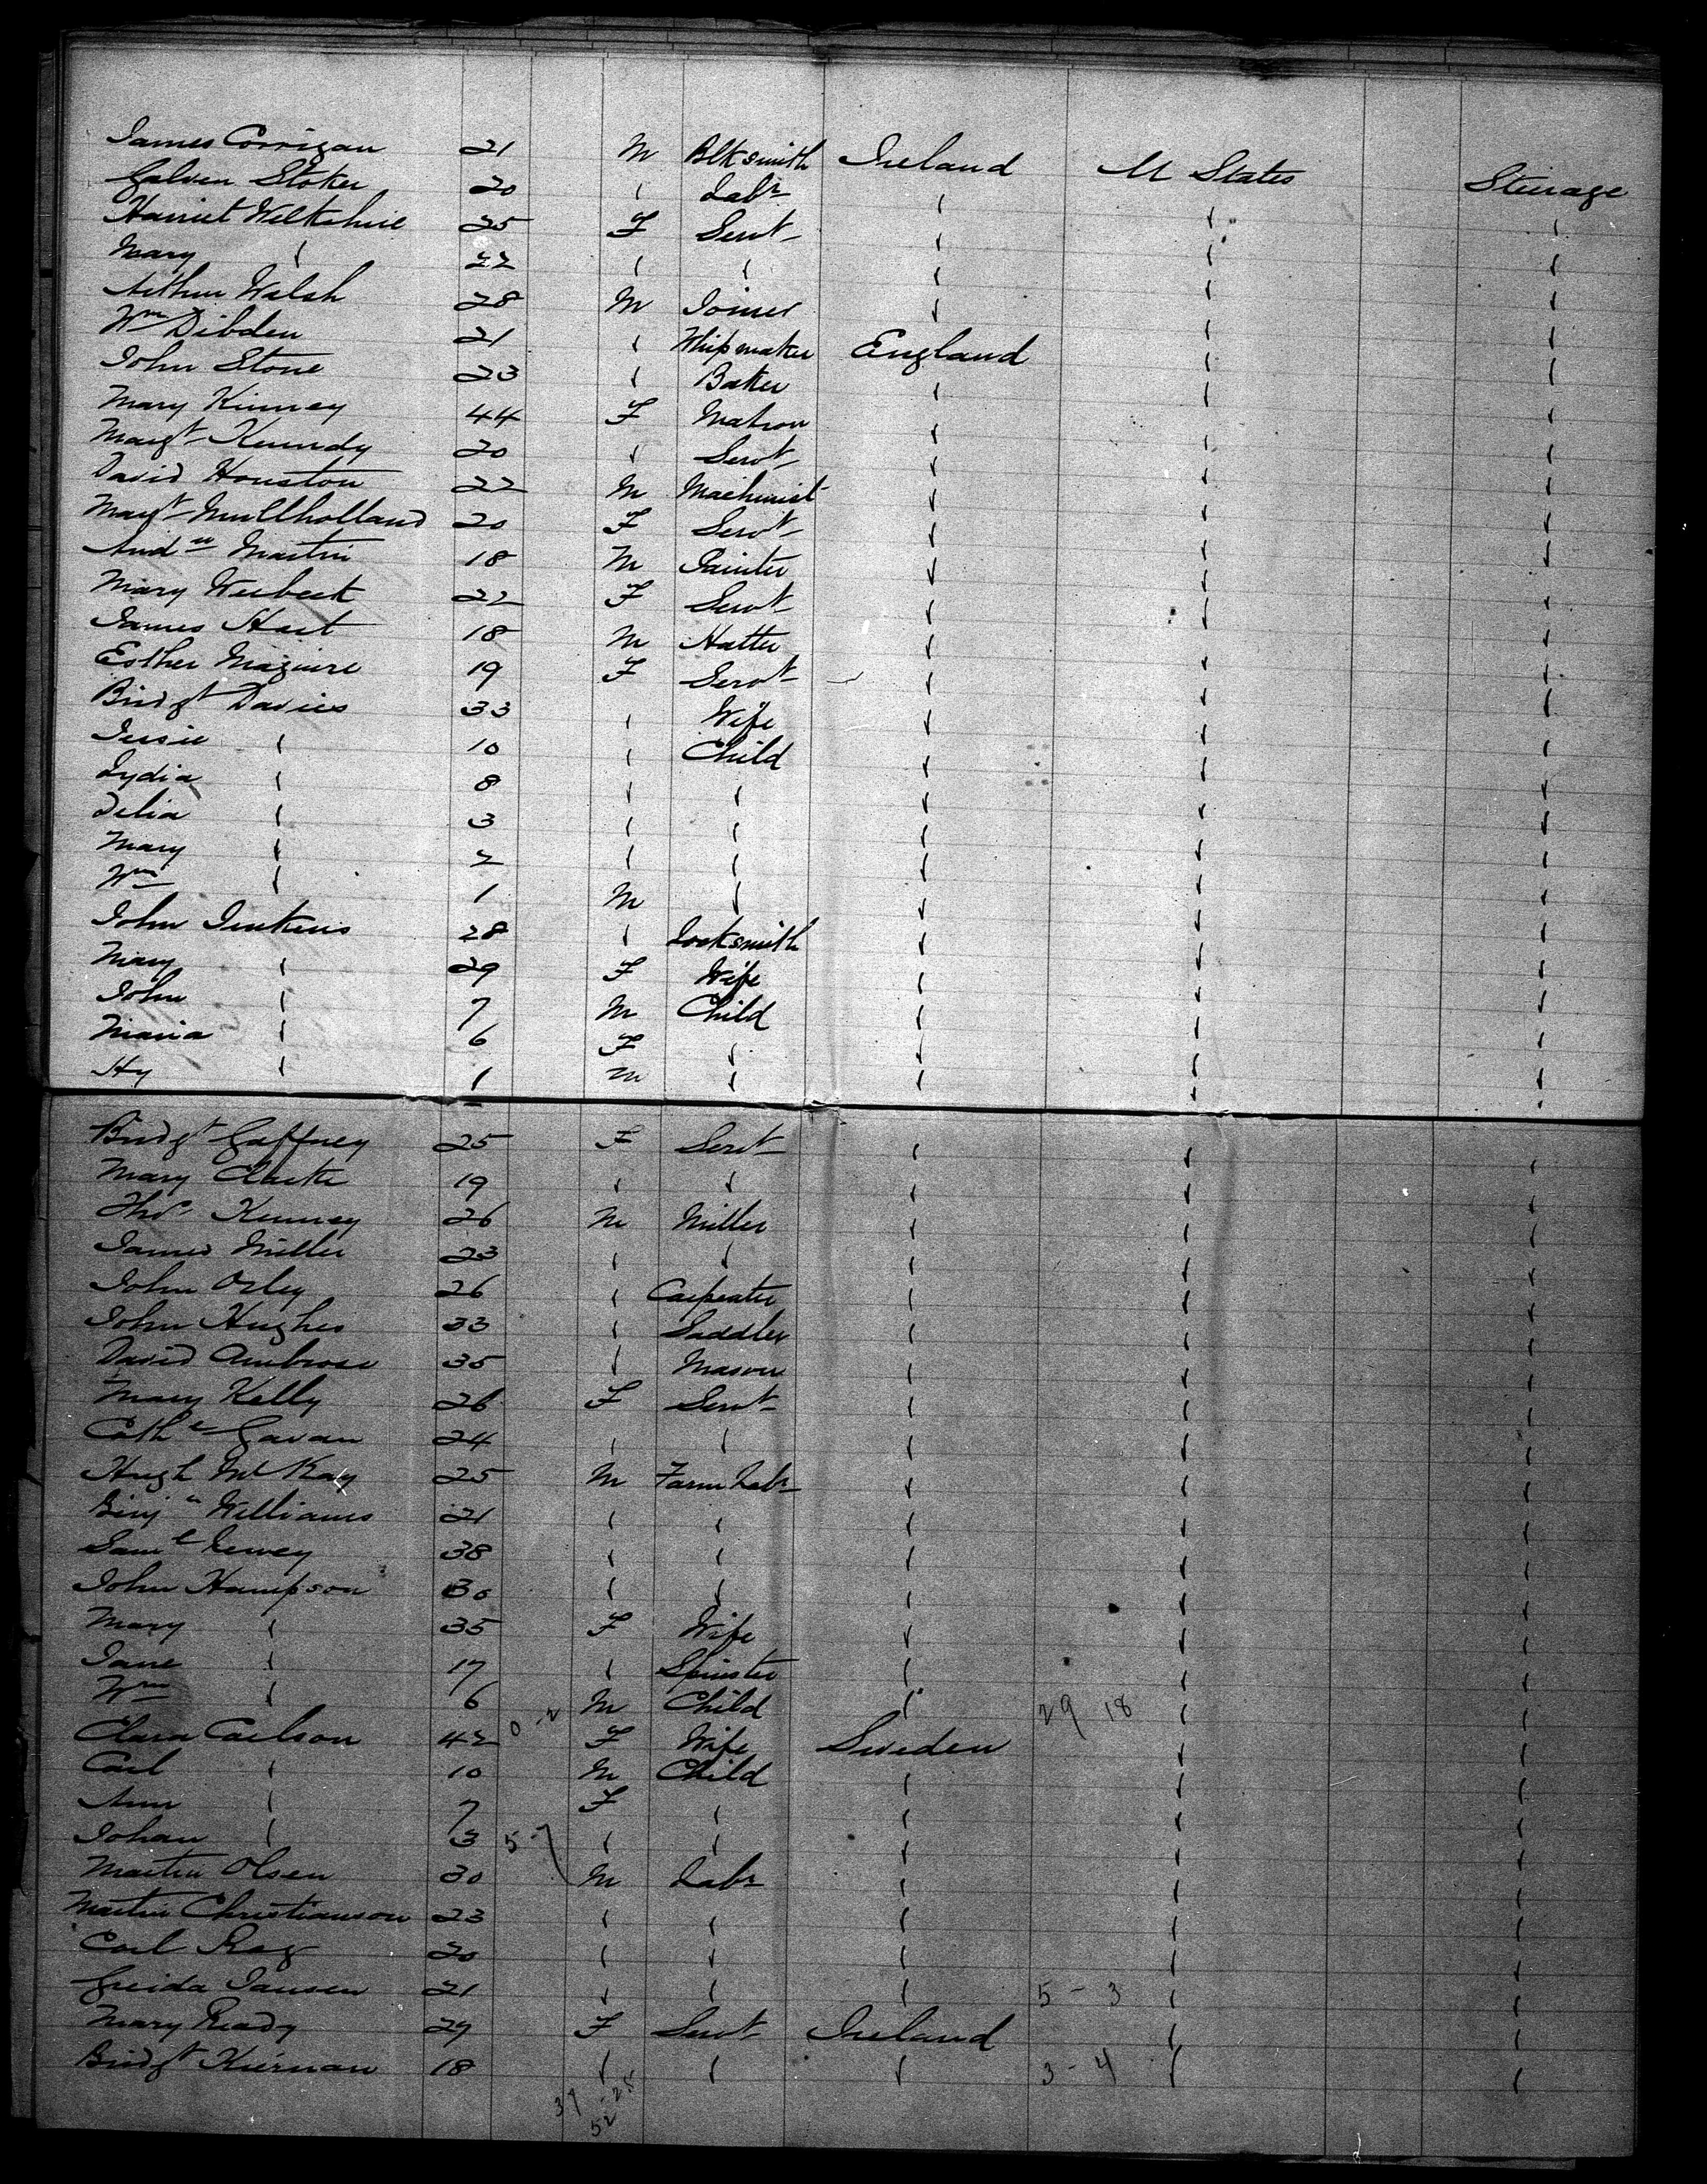 James Corrigan 21 M Blksmith Ireland U States Steerage
Galven Stoker 20 " Labr " " "
Harriet Weltshire 25 F Servt " " "
Mary " 22 " " " " "
Arthur Walsh 28 M Joiner " " "
Wm Dibden 21 " Whipmaker England " "
John Stone 23 " Baker " " "
Mary Kinney 44 F Matron " " "
Margt Kennedy 20 " Servt " " "
David Houston 22 M Machinist " " "
Margt Mullholland 20 F Servt " " "
Andw Martin 18 M Painter " " "
Mary Weebeck 22 F Servt " " "
James Hart 18 M Hatter " " "
Esther Maguire 19 F Servt " " "
Bridgt Davies 33 " Wife " " "
Jessie " 10 " Child " " "
Lydia " 8 " " " " "
Delia " 3 " " " " "
Mary " 2 " " " " "
Wm " 1 M " " " "
John Jenkins 28 " Locksmith " " "
Mary " 29 F Wife " " "
John " 7 M Child " " "
Maria " 6 F " " " "
Hy " 1 M " " " "
Bridgt Gaffney 25 F Servt " " "
Mary Clarke 19 " " " " "
Thos Kenney 26 M Miller " " "
James Miller 23 " " " " "
John Orley 26 " Carpenter " " "
John Hughes 33 " Saddler " " "
David Ambrose 35 " Mason " " "
Mary Kelly 26 F Servt " " "
Cathe Gavan 24 " " " " "
Hugh McKay 25 M Farm Labr " " "
Benjn Williams 21 " " " " "
Saml 38 " " " " "
John Hampson 30 " " " " "
Mary " 35 F Wife " " "
Jane " 17 " Spinster " " "
Wm " 6 M Child " 29 18 " "
Clara Carlson 42 0-2 F Wife Sweden " "
Carl " 10 M Child " " "
Ann " 7 F " " " "
Johan " 3 5-7 " " " " "
Martin Olsen 30 M Labr " " "
Martin Christianson 23 " " " " "
Carl 20 " " " " "
Greida Jansen 21 " " " 5-3 " "
Mary Ready 29 F Servt Ireland " "
Bridgt Kiernan 18 " " " 3-4 " "
37-25
52